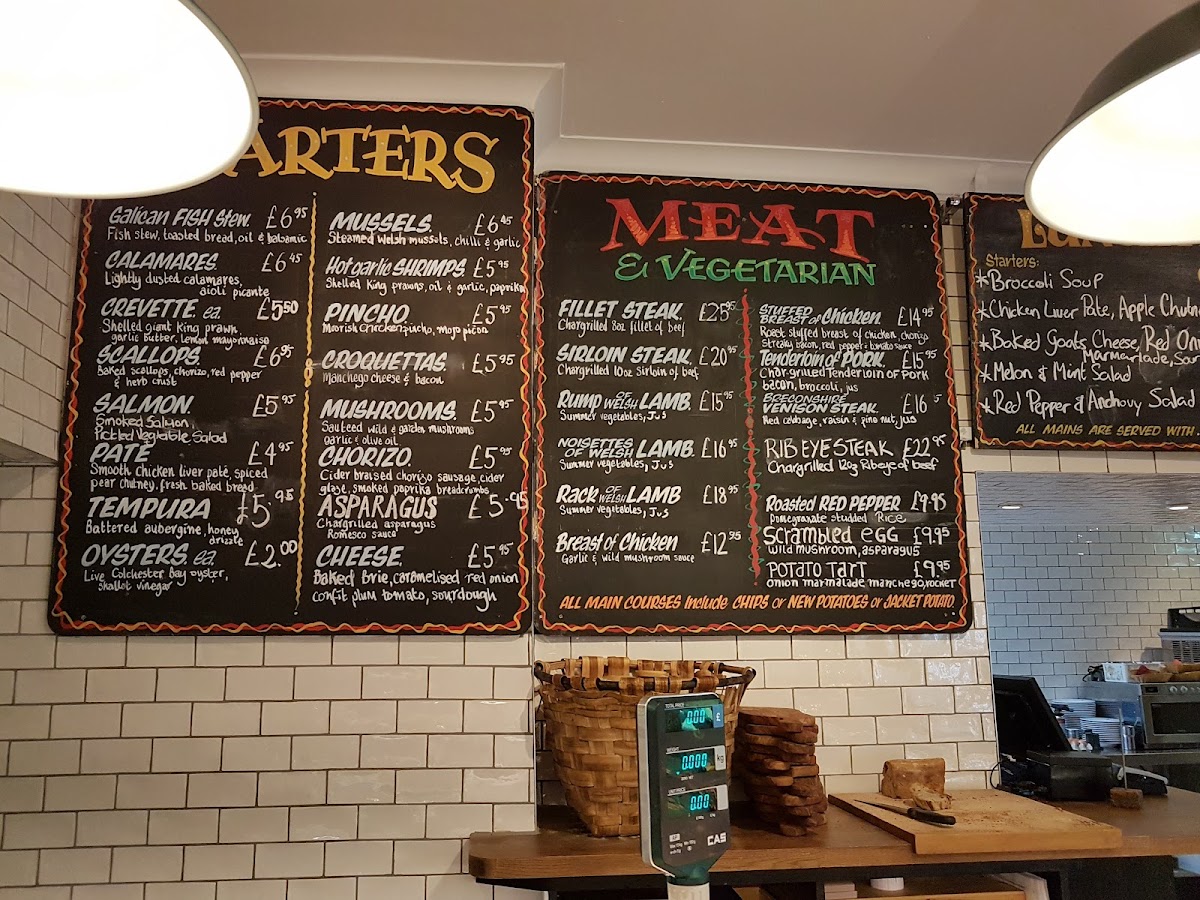 ARTERS
Galican FISH Stew. £6.95
Fish stew, toasted bread, oil & balsamic
CALAMARES. £6.45
Lightly dusted calamares,
aioli picante
CREVETTE. ea. £5.50
Shelled giant king prawn,
garlic butter, lemon mayonnaise
SCALLOPS. £6.95
Baked scallops, chorizo, red pepper
& herb crust
SALMON. £5.95
Smoked Salmon,
Pickled Vegetable Salad
PATÉ £4.95
Smooth chicken liver paté, spiced
pear chutney, fresh baked bread
TEMPURA £5.95
Battered aubergine, honey
drizzle
OYSTERS. ea £2.00
Live Colchester Bay oyster,
shallot vinegar
MUSSELS. £6.45
Steamed Welsh mussels, chilli & garlic
Hot garlic SHRIMPS. £5.95
Shelled King prawns, oil & garlic, paprika
PINCHO. £5.95
Morish chicken pincho, mojo picon
CROQUETTAS. £5.95
Manchego cheese & bacon
MUSHROOMS. £5.95
Sauteed wild & garden mushrooms
garlic & olive oil
CHORIZO. £5.95
Cider braised chorizo sausage, cider
glaze, smoked paprika breadcrumbs
ASPARAGUS £5.95
Chargrilled asparagus
Romesco sauce
CHEESE. £5.95
Baked Brie, caramelised red onion
confit plum tomato, sourdough
MEAT
& VEGETARIAN
FILLET STEAK. £25.95
Chargrilled 8oz fillet of beef
SIRLOIN STEAK. £20.95
Chargrilled 10oz Sirloin of beef
Rump OF WELSH LAMB. £15.95
Summer vegetables, Jus
NOISETTES OF WELSH LAMB. £16.95
Summer vegetables, Jus
Rack OF WELSH LAMB £18.95
Summer vegetables, Jus
Breast of Chicken £12.95
Garlic & wild mushroom sauce
STUFFED BREAST of Chicken £14.95
Roast stuffed breast of chicken, chorizo
Streaky bacon, red pepper & tomato sauce
Tenderloin of PORK. £15.95
Chargrilled Tenderloin of Pork
bacon, broccoli, jus
BRECONSHIRE
VENISON STEAK. £16.95
Red cabbage, raisin & pine nut, jus
RIB EYE STEAK £22.95
Chargrilled 12oz Ribeye of beef
Roasted RED PEPPER £9.95
Pomegranate studded Rice
Scrambled eGG £9.95
wild mushroom, asparagus
POTATO TART £9.95
onion marmalade, manchego, rocket
ALL MAIN COURSES Include CHIPS or NEW POTATOES or JACKET POTATO
Starters:
*Broccoli Soup
*Chicken Liver Pate, Apple Chutn
*Baked Goats Cheese, Red On
Marmarlade,
*Melon & Mint Salad
*Red Pepper & Anchovy Salad
ALL MAINS ARE SERVED WITH
TOTAL PRICE
0.00 £
WEIGHT
0.000 kg
UNIT PRICE
0.00
CAS